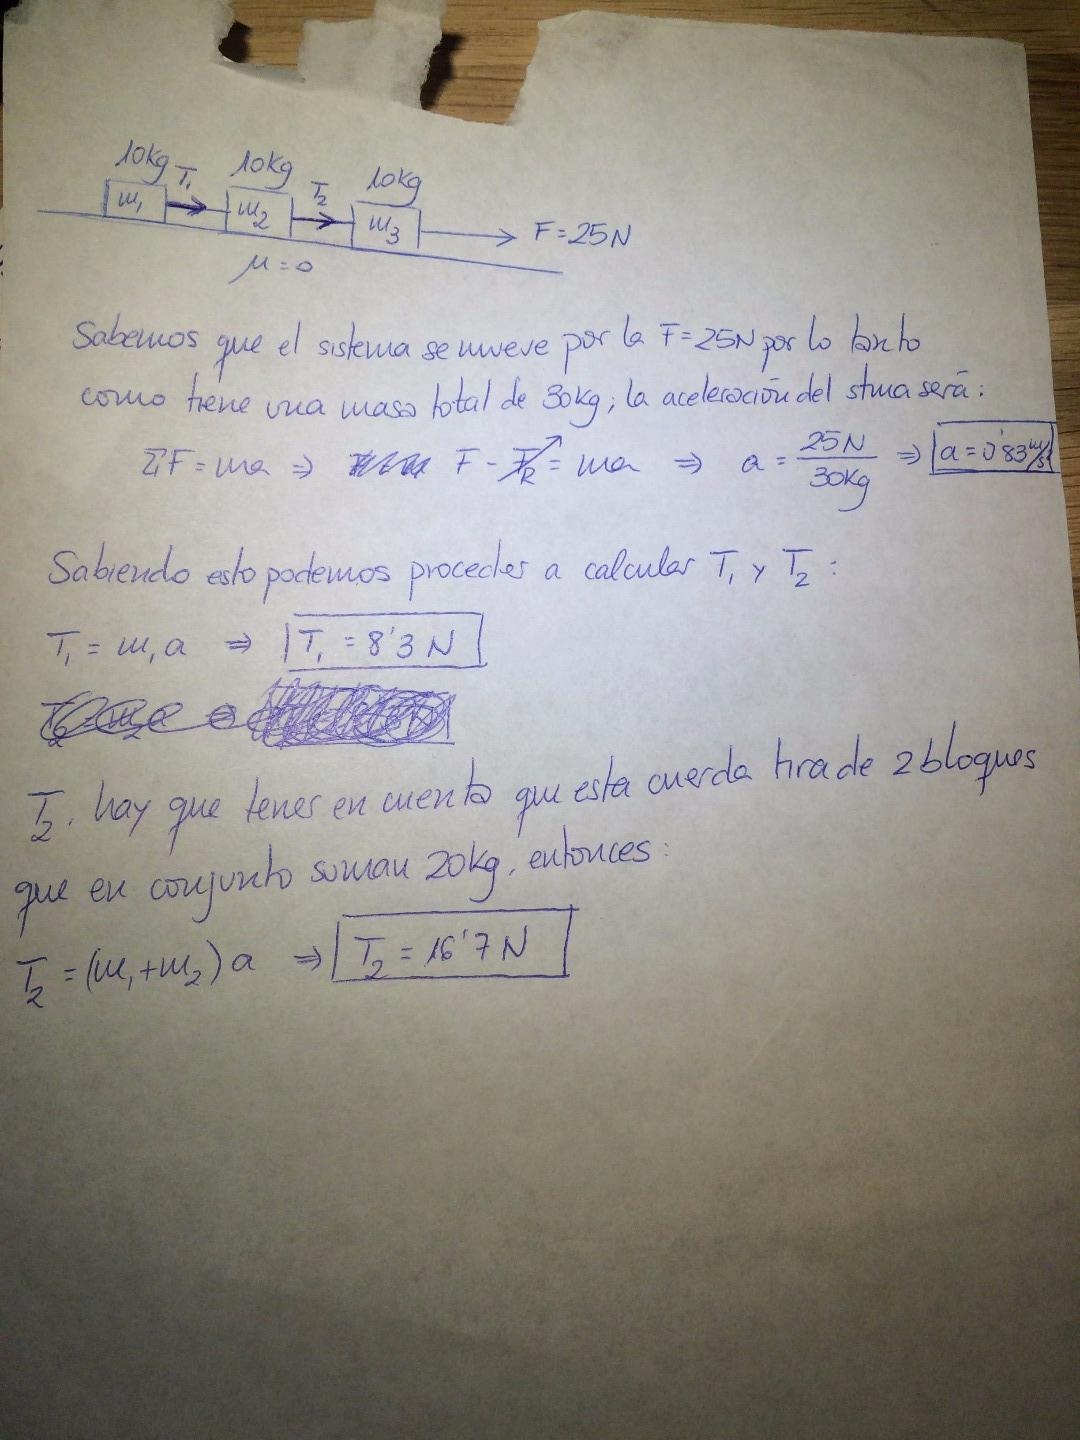 10kg T₁ 10kg T₂ 10kg
m₁ m₂ m₃ F=25N
μ=0
Sabemos que el sistema se mueve por la F=25N por lo tanto
como tiene una masa total de 30kg; la aceleración del stma será:
ΣF = ma ⇒ F - F_R = ma ⇒ a = 25N/30kg ⇒ a = 0'83 m/s
Sabiendo esto podemos proceder a calcular T₁ y T₂:
T₁ = m₁a ⇒ T₁ = 8'3 N
T₂. hay que tener en cuenta que esta cuerda tira de 2 bloques
que en conjunto suman 20kg, entonces:
T₂ = (m₁+m₂)a ⇒ T₂ = 16'7 N